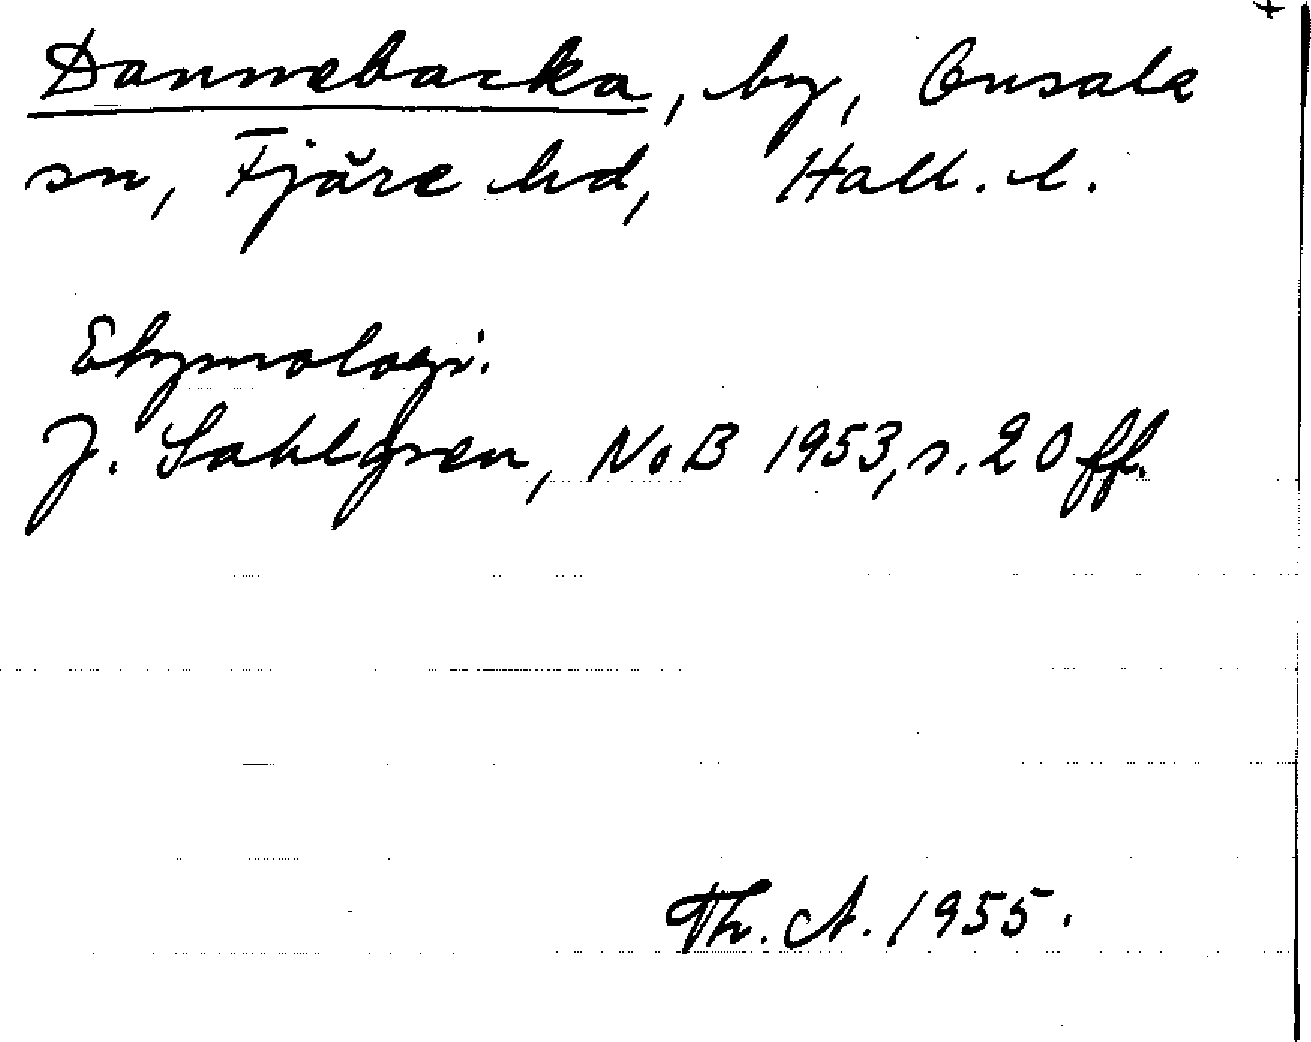 Dannebacka, by, Onsala
sn, Fjäre hd, Hall. l.
Etymologi.
J. Sahlgren, NoB 1953, s. 20 ff.
Th. A. 1955.